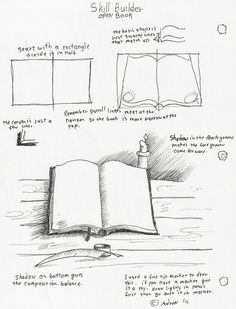 Skill Builder
open Book
start with a rectangle
divide it in half.
the basic shape is
just swervy lines
that match up
the corner's just a
few lines
Remember parallel lines meet at the
horizon so the book is more narrow at the
top.
Shadow in the Back ground
makes the fore ground
come forward.
Shadow on bottom gives
the composition balance.
I used a fine tip marker to draw
this. if you have a marker give
it a try. draw lightly in pencil
first then go over it in marker.